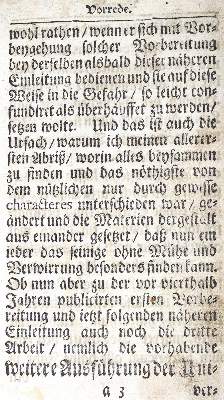 Vorrede.
wohl rathen / wenn er sich mit Vor-
beygehung solcher Vorbereitung
bey derselben alsbald dieser näheren
Einleitung bedienen und sie auf diese
Weise in die Gefahr / so leicht con-
fundirt als überhäuffet zu werden /
setzen wolte. Und das ist auch die
Ursach / warum ich meinen allerer-
sten Abriß / worin alles beysammen
zu finden und das nöthigste von
dem nützlichen nur durch gewisse
characteres unterschieden war / ge-
ändert und die Materien dergestalt
aus einander gesetzet / daß nun ein
jeder das seinige ohne Mühe und
Verwirrung besonders finden kann.
Ob nun aber zu der vor vierthalb
Jahren publicirten ersten Vorbe-
reitung und ietzt folgenden näheren
Einleitung auch noch die dritte
Arbeit / nemlich die vorhabende
weitere Ausführung der Uni-
a 3 ver-